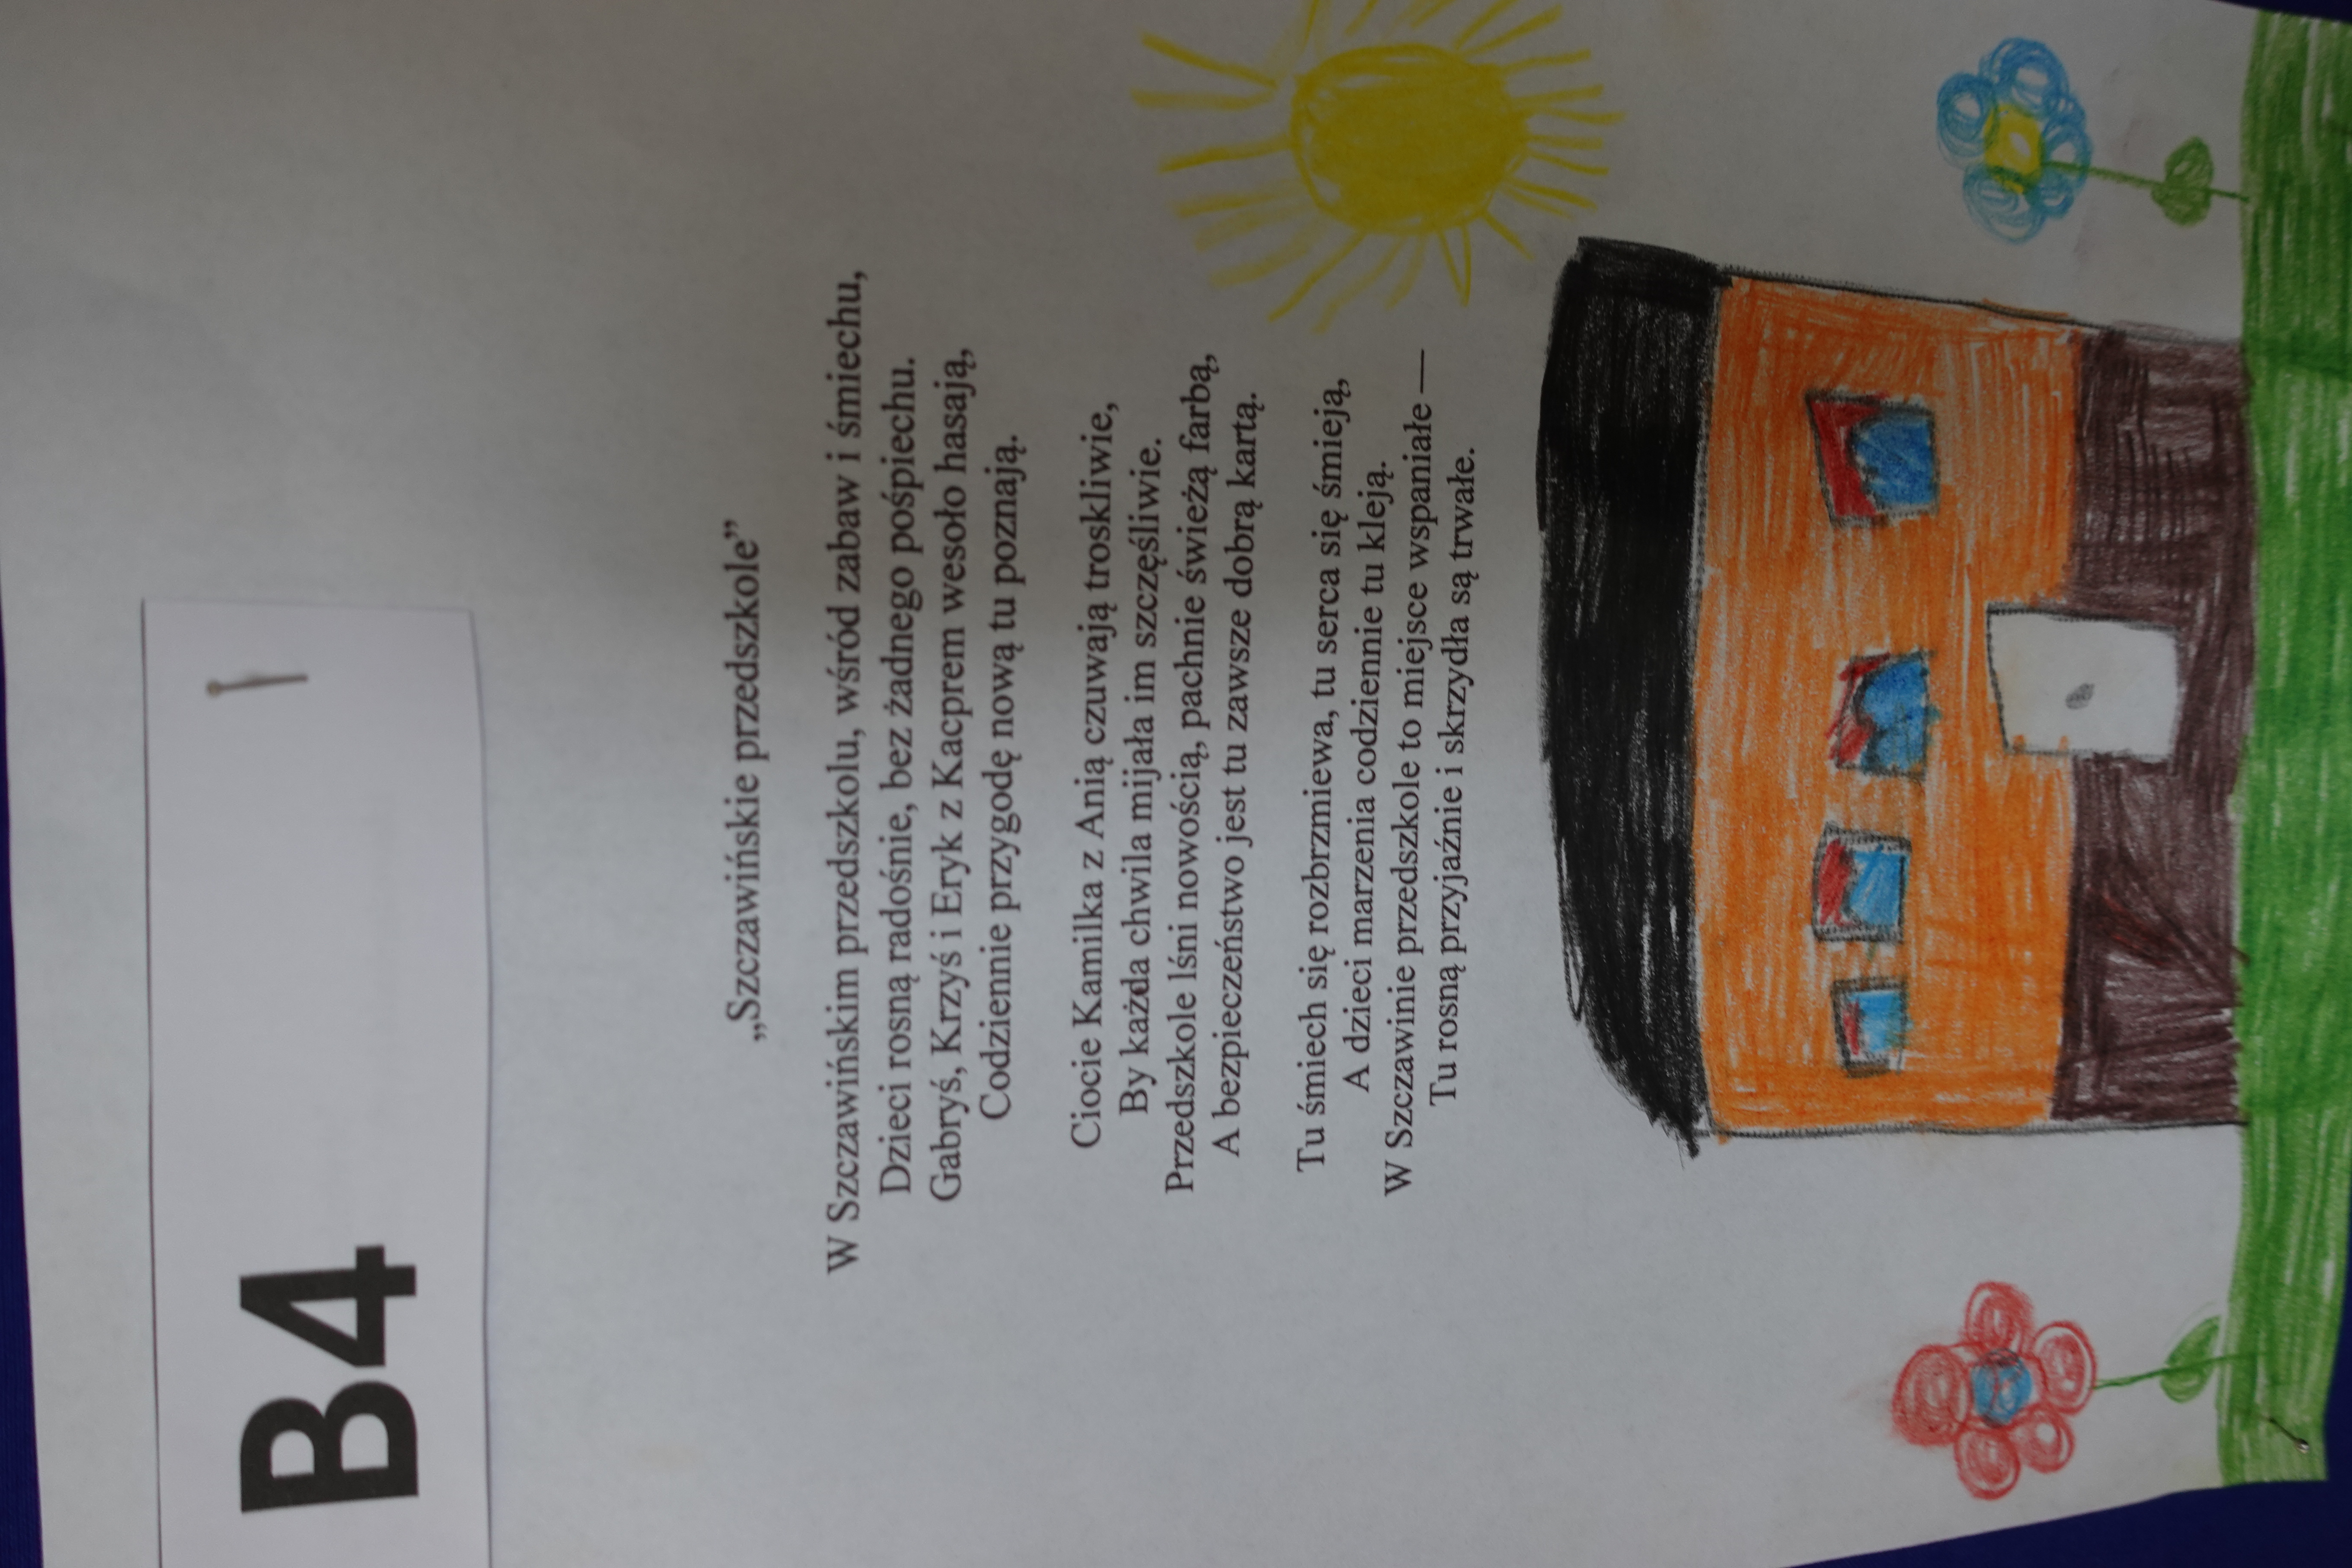 B4
„Szczawińskie przedszkole”
W Szczawińskim przedszkolu, wśród zabaw i śmiechu,
Dzieci rosną radośnie, bez żadnego pośpiechu.
Gabryś, Krzyś i Eryk z Kacprem wesoło hasają,
Codziennie przygodę nową tu poznają.
Ciocie Kamilka z Anią czuwają troskliwie,
By każda chwila mijała im szczęśliwie.
Przedszkole lśni nowością, pachnie świeżą farbą,
A bezpieczeństwo jest tu zawsze dobrą kartą.
Tu śmiech się rozbrzmiewa, tu serca się śmieją,
A dzieci marzenia codziennie tu kleją.
W Szczawinie przedszkole to miejsce wspaniałe —
Tu rosną przyjaźnie i skrzydła są trwałe.